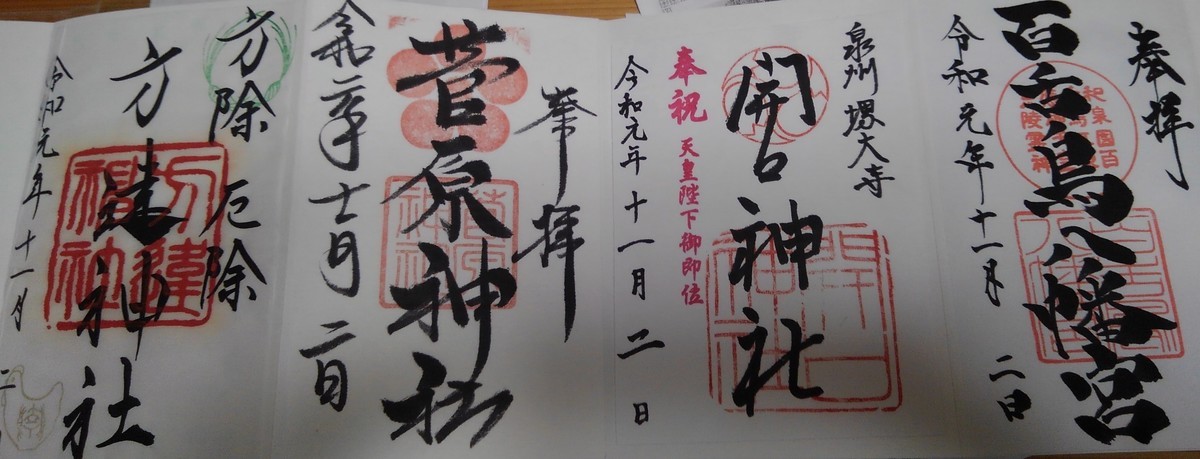 奉拝
百舌鳥八幡宮
令和元年十一月 二日
泉州堺大寺
開口神社
開口神社
奉祝 天皇陛下御即位
令和元年十一月二日
奉拝
菅原神社
菅原神社
令和元年十一月二日
方除 厄除
方違神社
方違神社
令和元年十一月二